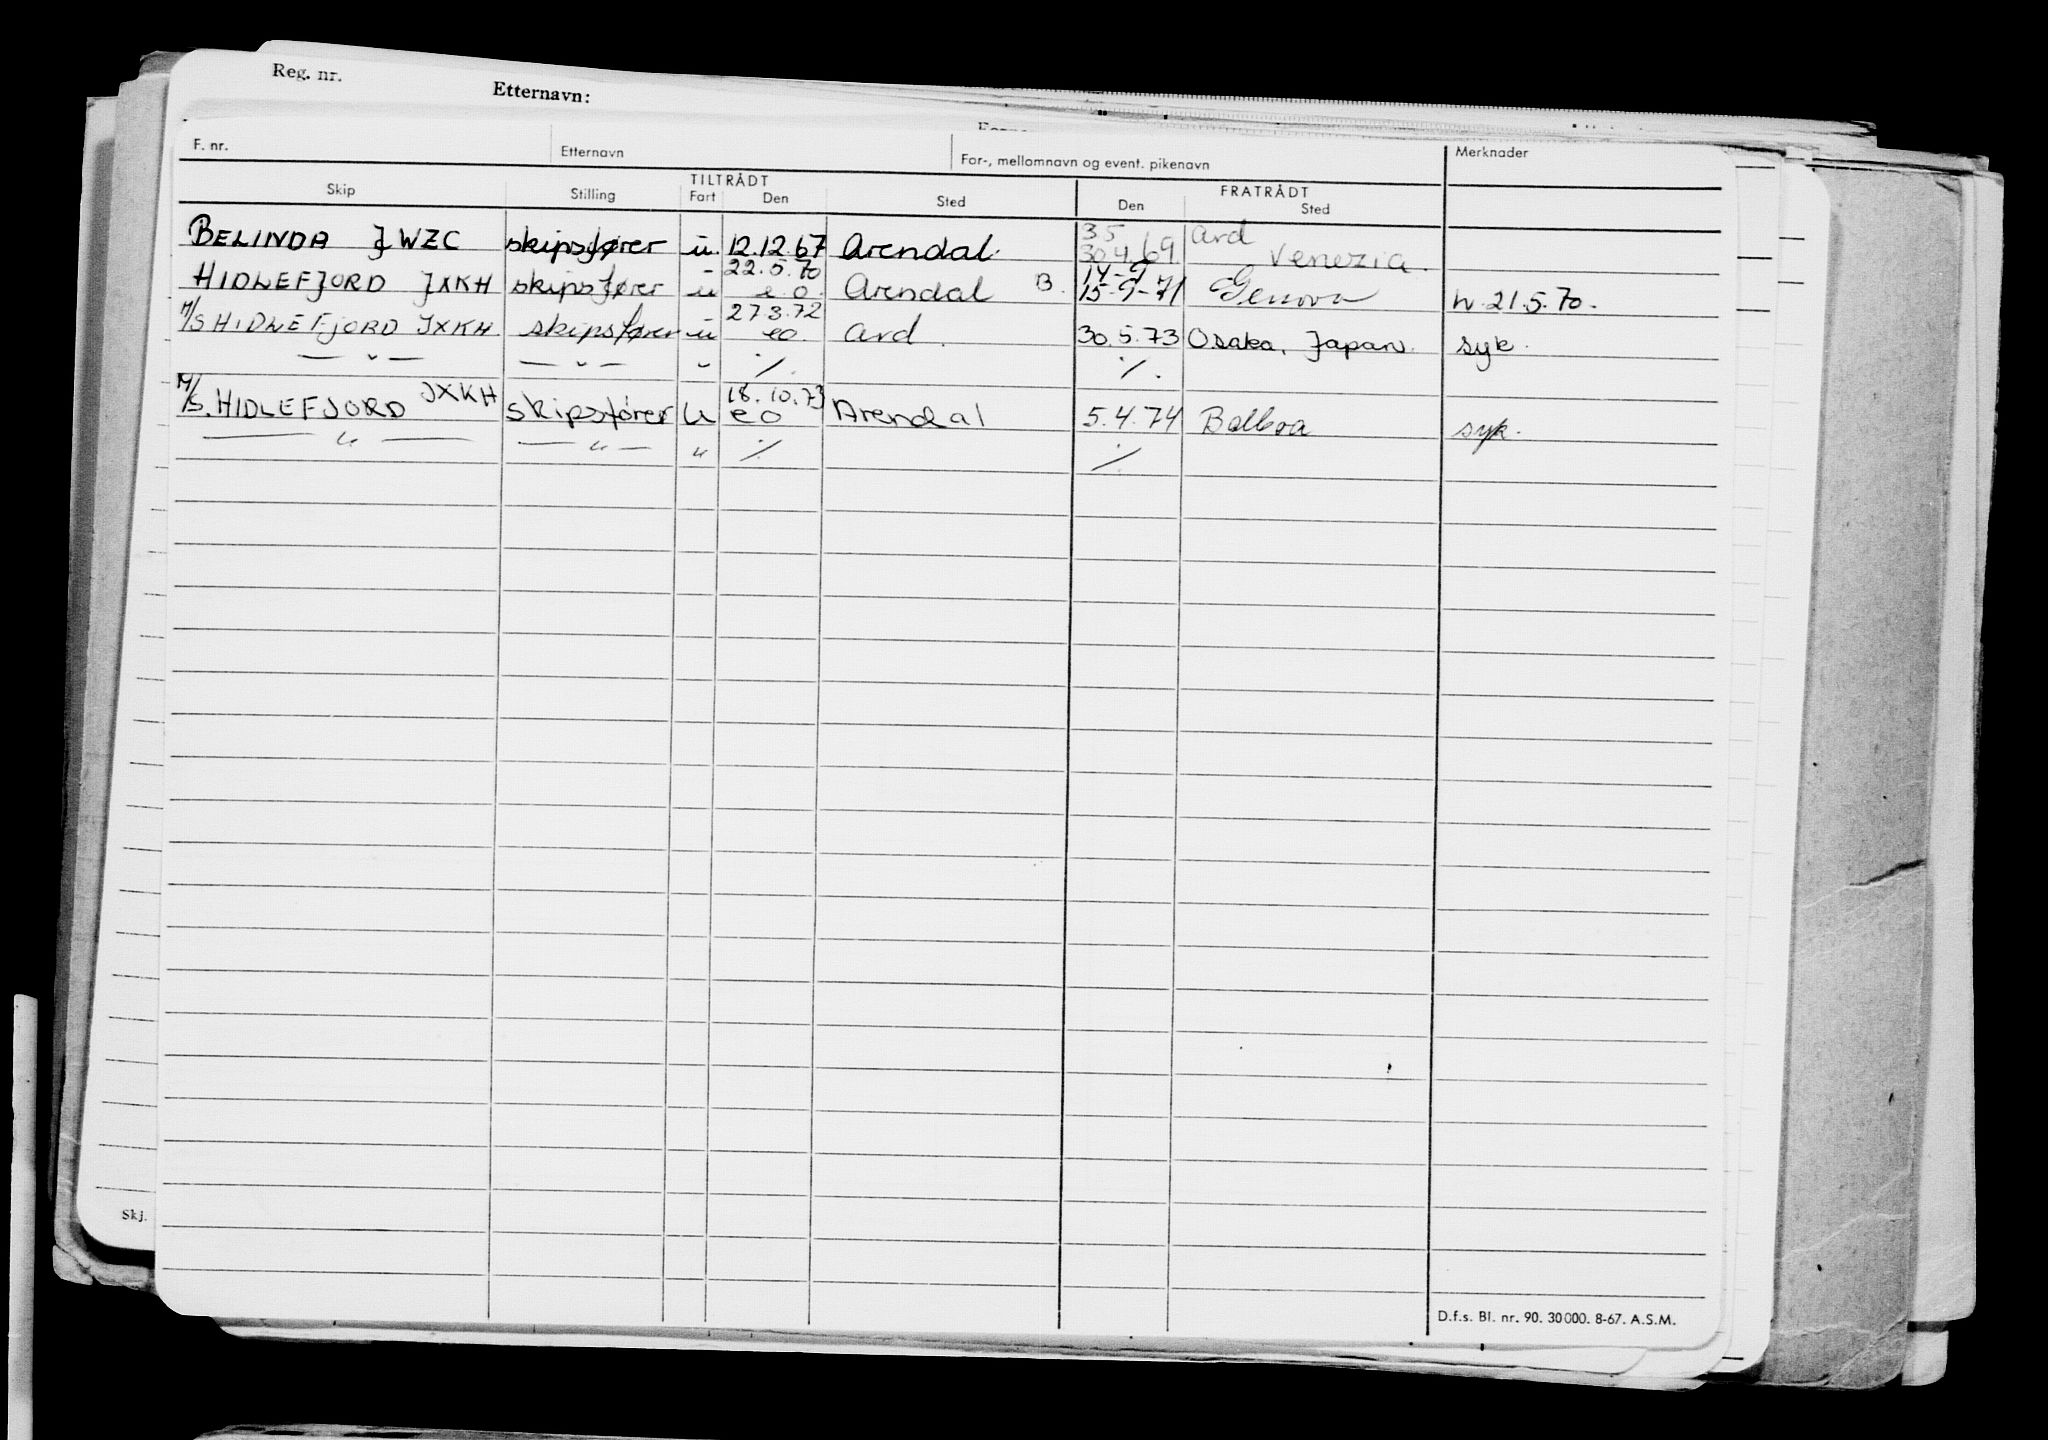 Reg. nr.
Etternavn:
F. nr. Etternavn For-, mellomnavn og event. pikenavn Merknader
TILTRÅDT FRATRÅDT
Skip Stilling Fart Den Sted Den Sted
3.5 Ard
BELINDA JWZC skipsfører u. 12.12.67 Arendal. 30.4.69. Venezia.
22.5.70 14-9
HIDLEFJORD JXKH skipsfører u e o. Arendal B. 15-9-71 Genova h. 21.5.70.
27.3.72
M/S HIDLEFJORD JXKH skipsfører u eo. Ard. 30.5.73 Osaka, Japan. syk.
— " — — " — " %. %.
18.10.73
M/S. HIDLEFJORD JXKH skipsfører U eo Arendal 5.4.74 Balboa syk.
— " — — " — " % %
Skj.
D.f.s. Bl. nr. 90. 30000. 8-67. A.S.M.